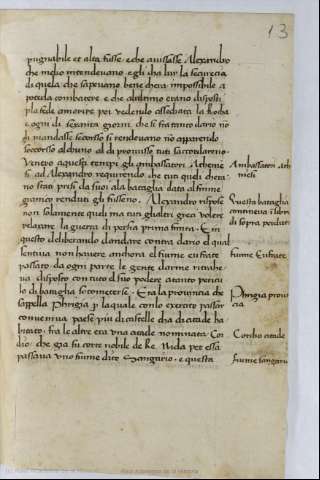 13
pugnabile et alta fusse e che avissasse Alexandro
che meio intendevano egli cha lui la securecia
di quela che sapevano bene chera impossibile a
poterla combatere e che alultimo erano disposti
p la fede amorire poi vedendo assediata la Rocha
e ogni di
di mandasse socorso si rendevano no aparendo
soccorso alchuno al di promisso tuti
Venero aquesti tempi gli ambassatori Athenie
si ad Alexandro requirendo che tuti queli cheta
no stati presi da suoi ala bataglia data al fiume
granico renduti gli fusseno Alexandro rispose
non solamente queli ma tuti glialtri greci volere
relaxare la guerra di persia prima finita E in
questo deliberando dandare contra dario el qual
sentiva non havere anchora el fiume eufrate
passato da ogni parte le gente dorme
va disposto con tuto el suo podere a tanto pericu
lo di bataglia so cometerse Era la provincia che
sappella Phrigia p la quale conlo exercito passar
conveniva paese piu di castelle cha di citade ha
bitato fra le altre era una citade nominata Cor
dio che gia fu corte nobile de Re Mida per essa
passava uno fiume dito Sangario e questa
Ambassatori Athe
niesi
Questa bataglia
conteneva i libri
di sopra perduti
fiume Eufrate
Phrigia provi
cia
Cordio citade
fiume sangario